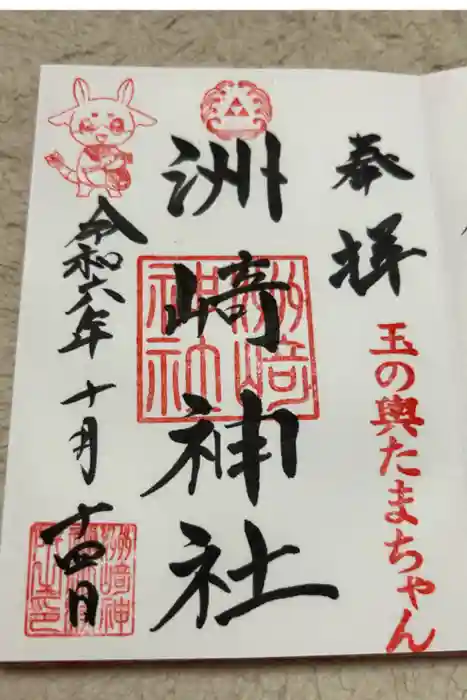 奉拝
玉の輿たまちゃん
洲崎神社
洲崎神社
令和六年十月十四日